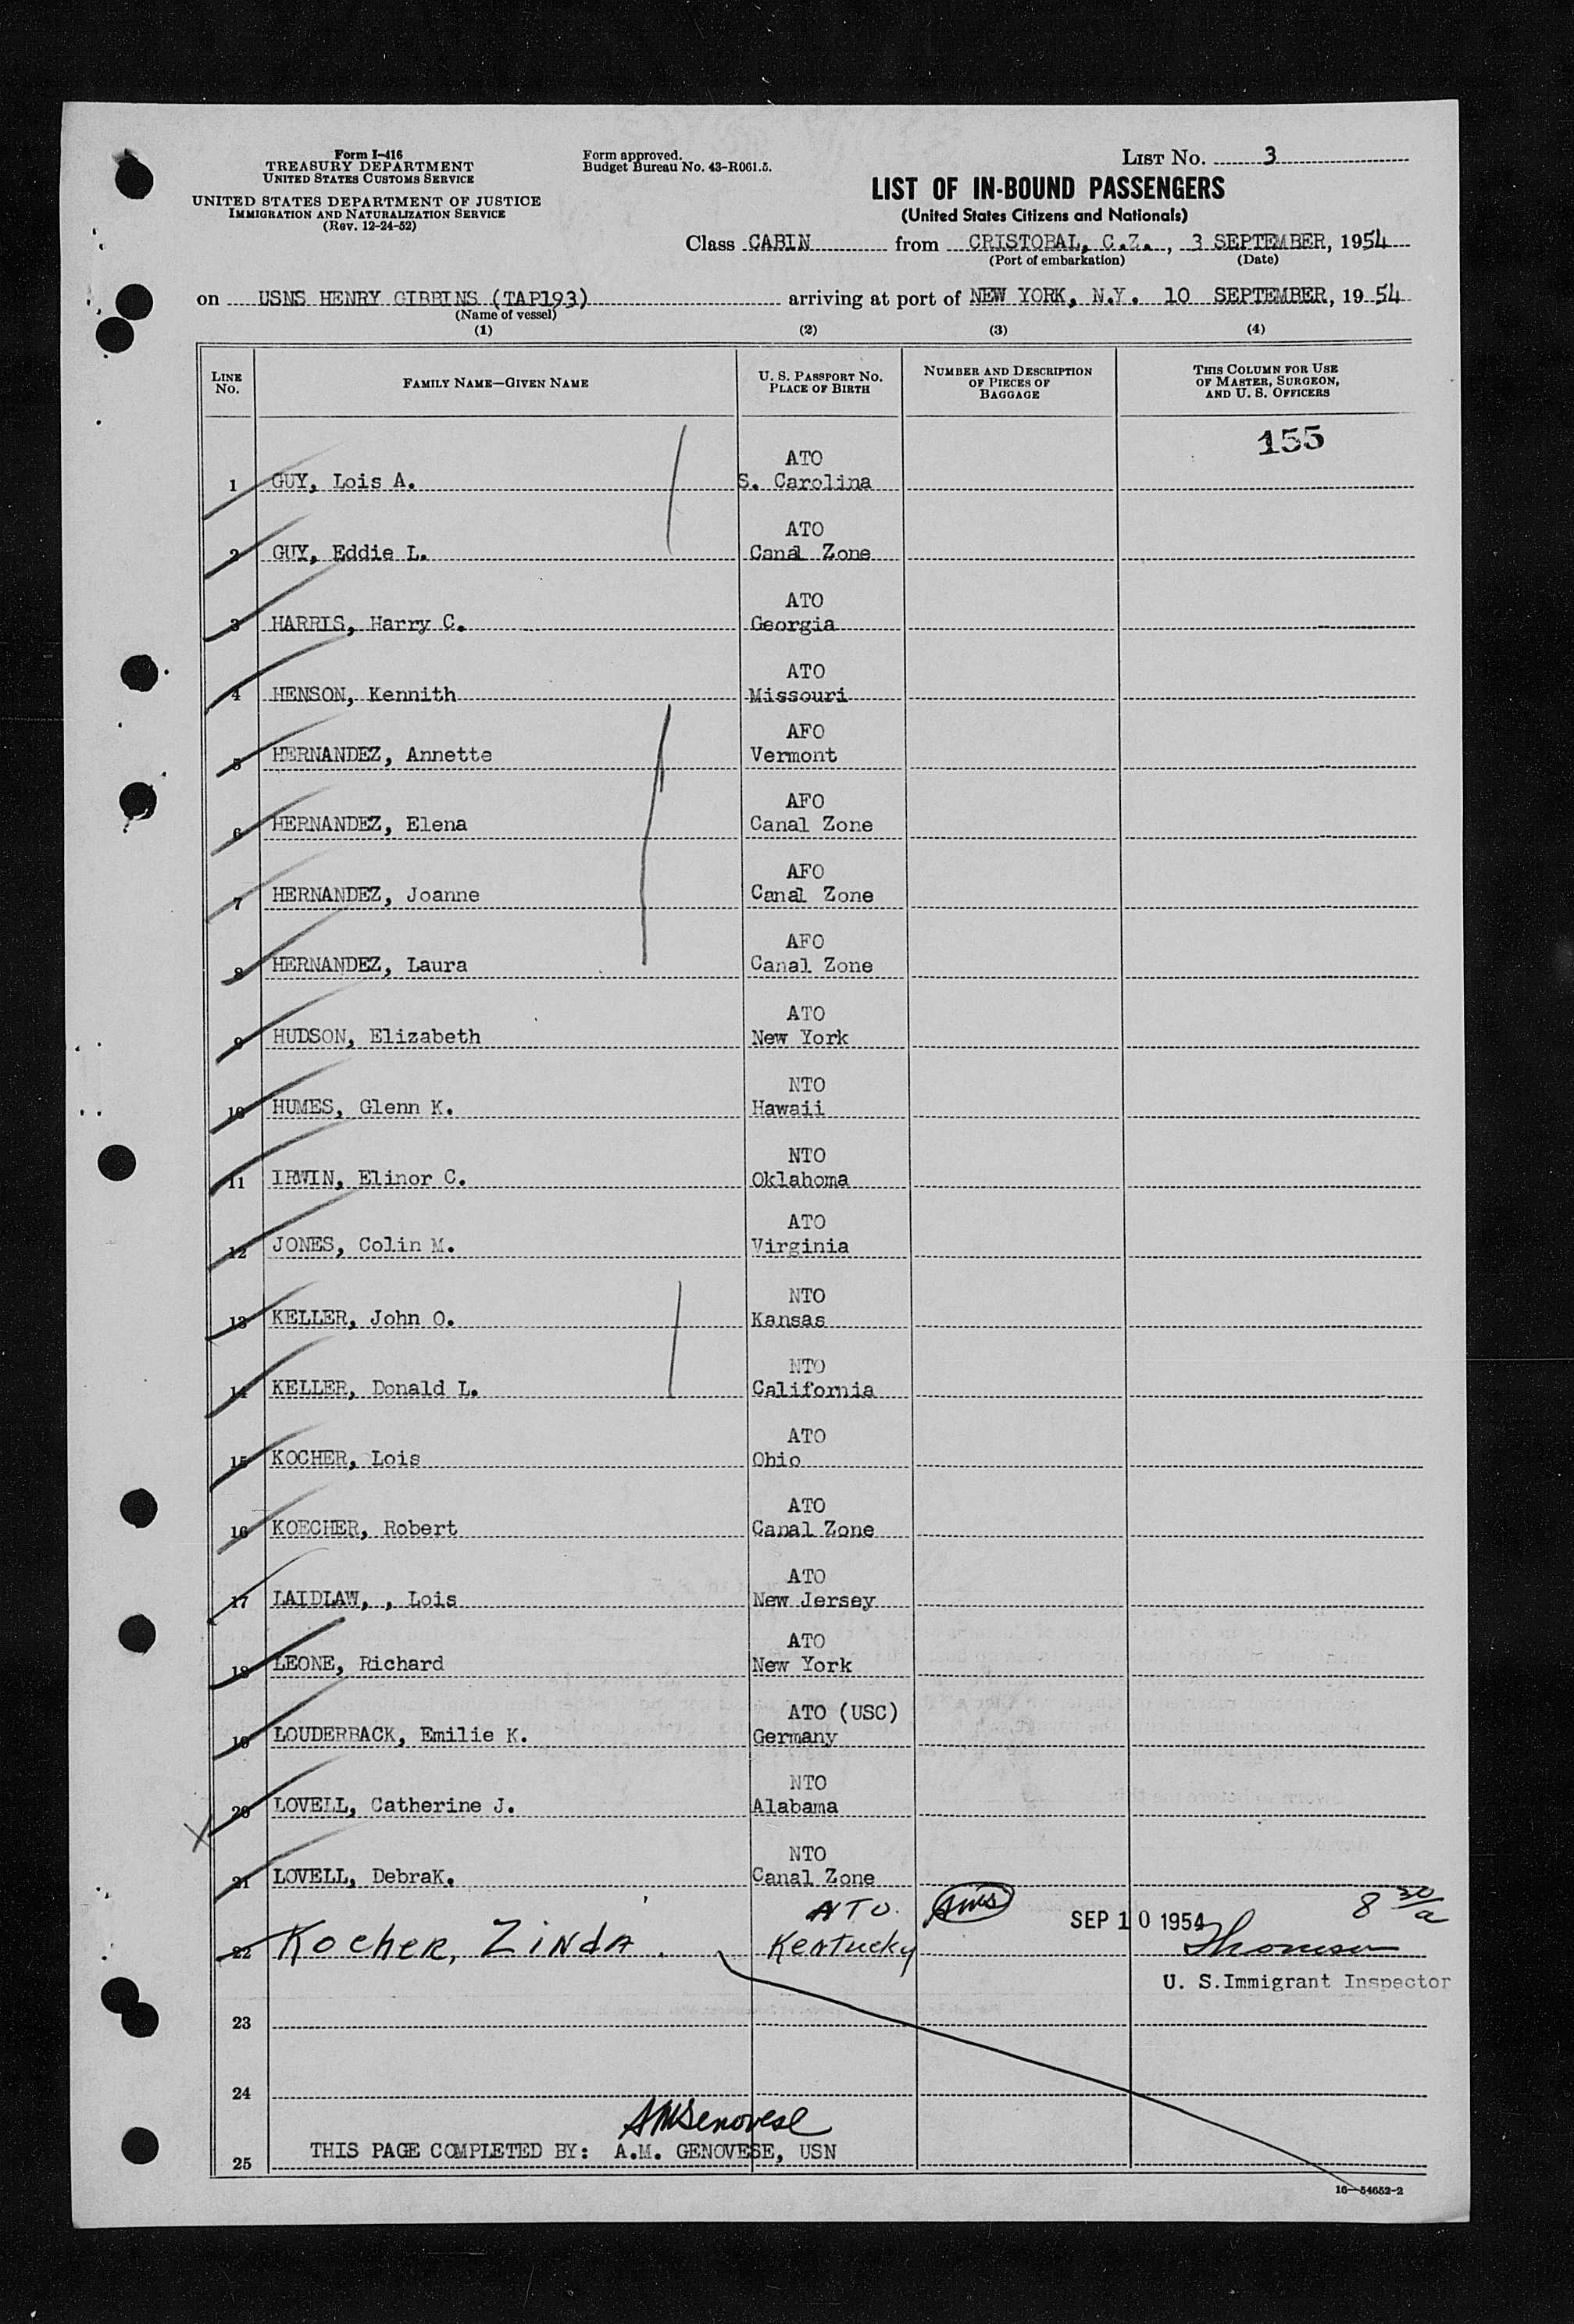 Form I-416
TREASURY DEPARTMENT
UNITED STATES CUSTOMS SERVICE
UNITED STATES DEPARTMENT OF JUSTICE
IMMIGRATION AND NATURALIZATION SERVICE
(Rev. 12-24-52)
Form approved.
Budget Bureau No. 43-R061.5.
LIST NO. 3
LIST OF IN-BOUND PASSENGERS
(United States Citizens and Nationals)
Class CABIN from CRISTOBAL, C.Z., 3 SEPTEMBER, 1954
(Port of embarkation) (Date)
on USNS HENRY GIBBINS (TAP193) arriving at port of NEW YORK, N.Y. 10 SEPTEMBER, 1954
(Name of vessel)
(1) (2) (3) (4)
LINE NO. FAMILY NAME—GIVEN NAME U. S. PASSPORT NO. PLACE OF BIRTH NUMBER AND DESCRIPTION OF PIECES OF BAGGAGE THIS COLUMN FOR USE OF MASTER, SURGEON, AND U. S. OFFICERS
155
ATO
1 GUY, Lois A. S. Carolina
ATO
2 GUY, Eddie L. Canal Zone
ATO
3 HARRIS, Harry C. Georgia
ATO
4 HENSON, Kennith Missouri
AFO
5 HERNANDEZ, Annette Vermont
AFO
6 HERNANDEZ, Elena Canal Zone
AFO
7 HERNANDEZ, Joanne Canal Zone
AFO
8 HERNANDEZ, Laura Canal Zone
ATO
9 HUDSON, Elizabeth New York
NTO
10 HUMES, Glenn K. Hawaii
NTO
11 IRWIN, Elinor C. Oklahoma
ATO
12 JONES, Colin M. Virginia
NTO
13 KELLER, John O. Kansas
NTO
14 KELLER, Donald L. California
ATO
15 KOCHER, Lois Ohio
ATO
16 KOECHER, Robert Canal Zone
ATO
17 LAIDLAW, , Lois New Jersey
ATO
18 LEONE, Richard New York
ATO (USC)
19 LOUDERBACK, Emilie K. Germany
NTO
20 LOVELL, Catherine J. Alabama
NTO
21 LOVELL, DebraK. Canal Zone
ATO. SEP 10 1954 8 30/a
22 Kocher, Zinda. Kentucky Thomson
U. S. Immigrant Inspector
23
24
AMGenovese
25 THIS PAGE COMPLETED BY: A.M. GENOVESE, USN
16—54652-2